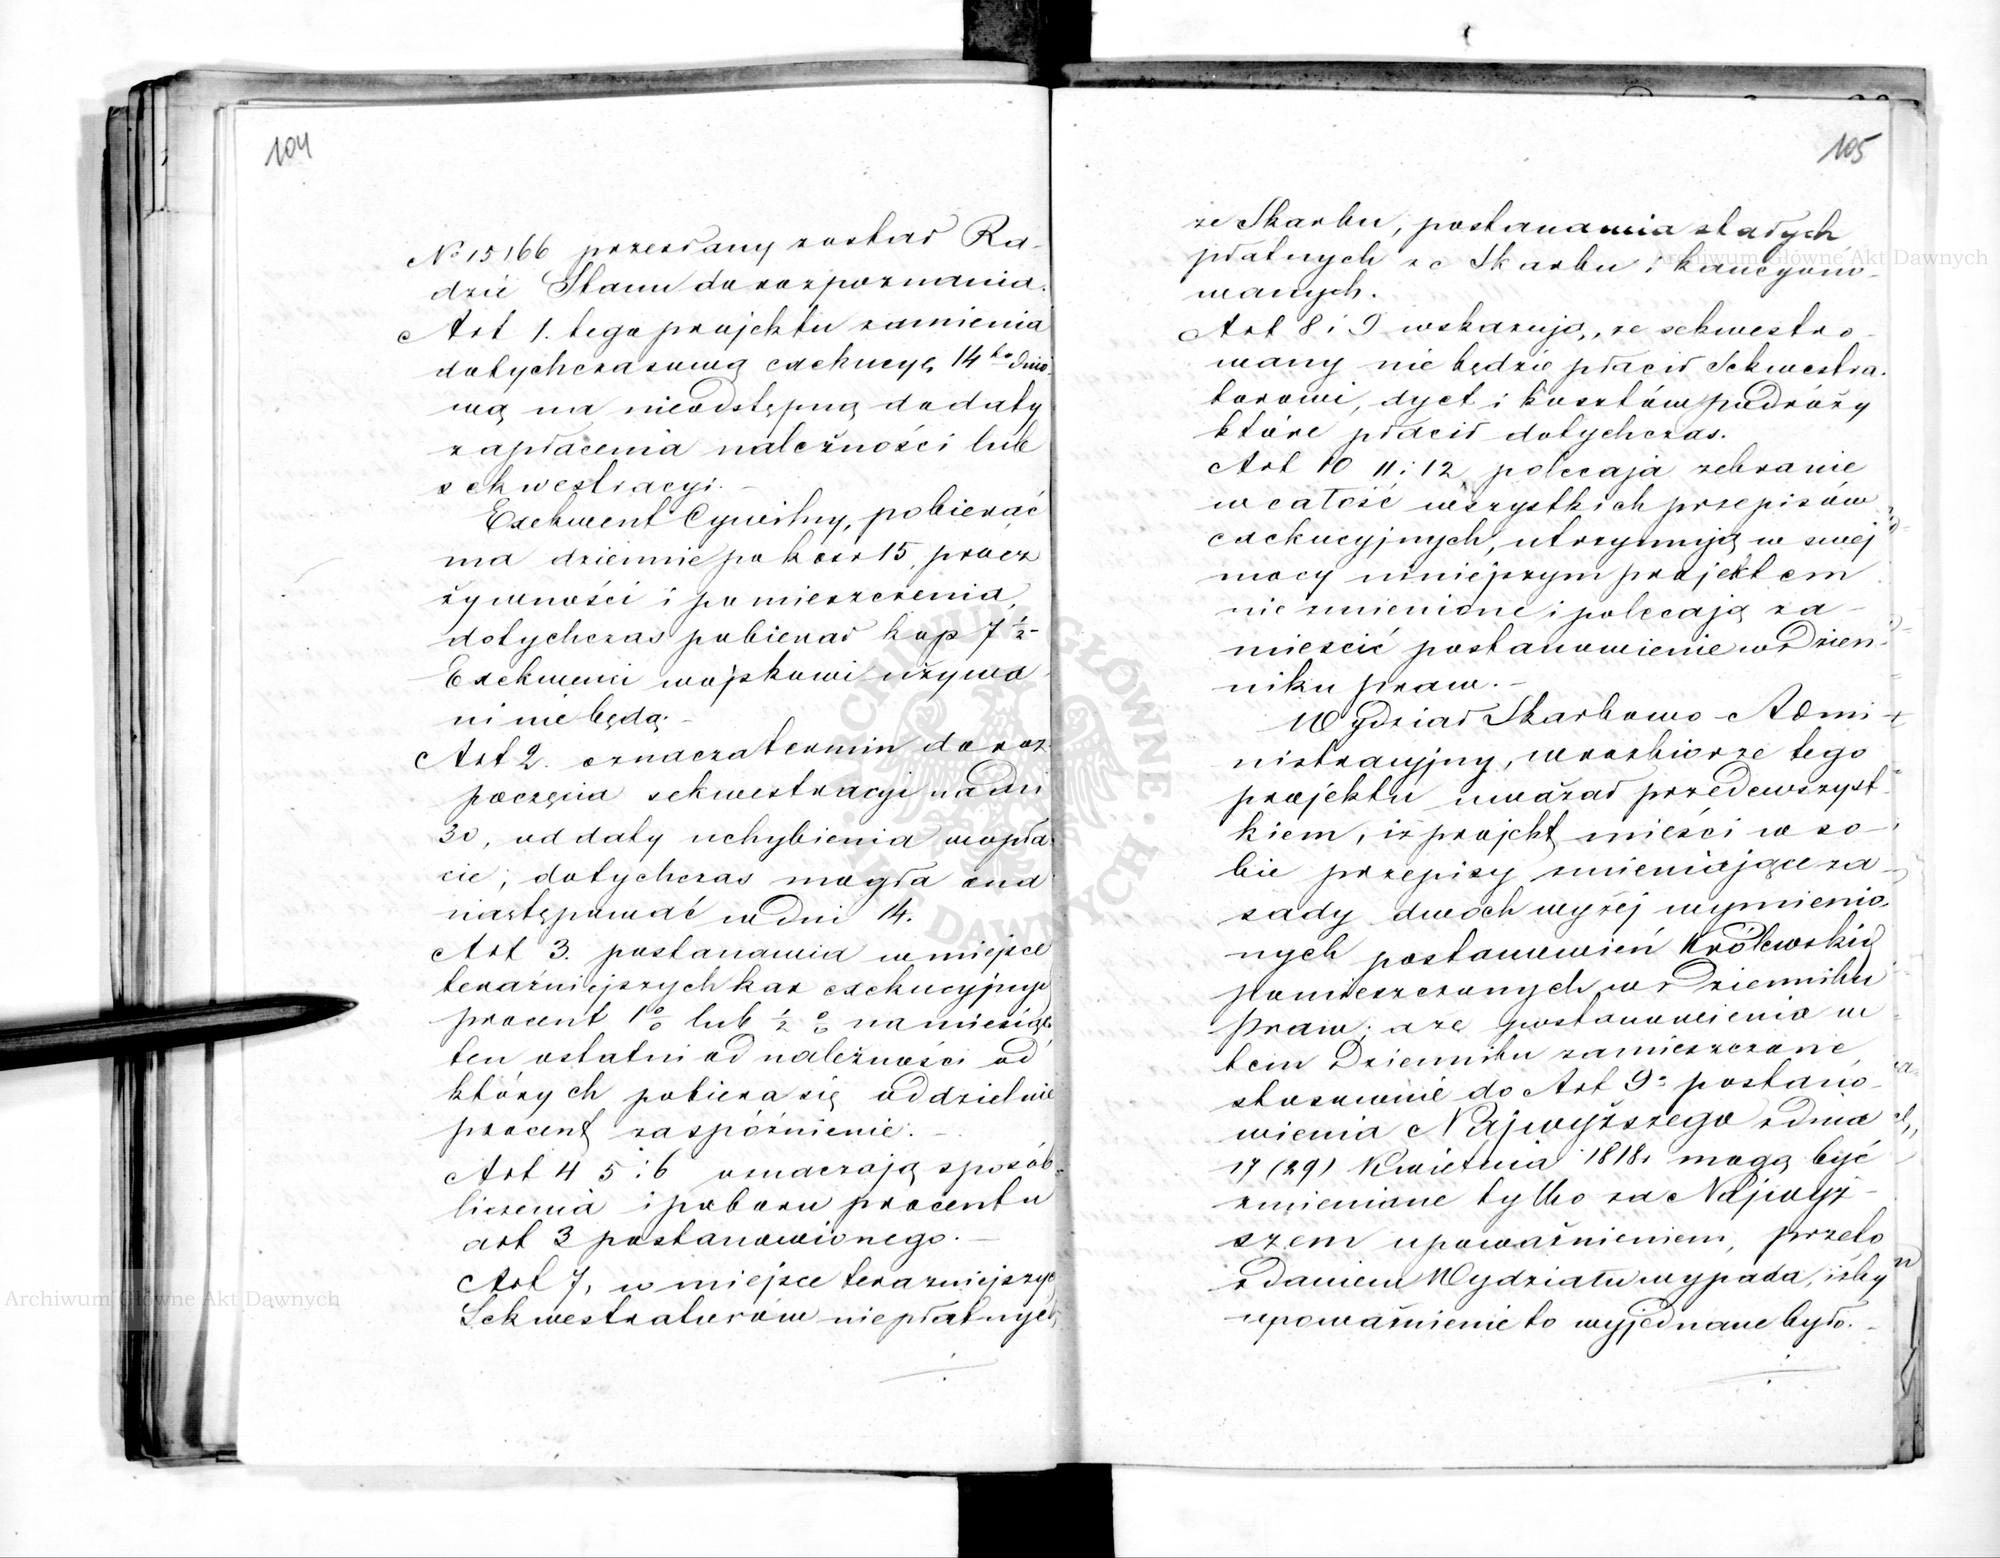 104
№ 15166 przesłany został Ra-
dzie Stanu do rozpoznania.
Art 1. tego projektu zamienia
dotychczasową exekucyę 14to dnio
wą na nieodstępną do daty
zapłacenia należności lub
sekwestracyi. –
Exekwent Cywilny, pobierać
ma dziennie po kosr 15, procz
żywności i pomieszczenia,
dotychczas pobierał kop 7 ½ –
Exekwenci wojskowi używa
ni nie będą. –
Art 2. oznacza termin do roz-
poczęcia sekwestracyi na dni
30, od daty uchybienia w opła-
cie; dotychczas mogła ona
następować w dni 14.
Art 3. postanawia w miejsce
teraźniejszych kar exekucyjnych
procent 1 % lub ½ % na miesiąc
ten ostatni od należności od
których pobiera się oddzielnie
procent za spóźnienie. –
Art 4 5 i 6 oznaczają sposób
liczenia i poboru procentu
art 3 postanowionego. –
Art 7, w miejsce teraźniejszych
Sekwestratorów niepłatnych
105
ze Skarbu, postanawia stałych
płatnych ze Skarbu i kaucyono-
wanych.
Art 8 i 9 wskazują, że sekwestro-
wany nie będzie płacił Sekwestra-
torowi, dyet i kosztów podróży
które płacił dotychczas.
Art 10 11 i 12 polecają zebranie
w całość wszystkich przepisów
exekucyjnych, utrzymują w swej
mocy niniejszym projektem
nie zmienione i polecają za-
mieścić postanowienie w Dzien-
niku praw. –
Wydział Skarbowo-Admi-
nistracyjny, w rozbiorze tego
projektu uważał przedewszyst-
kiem, iż projekt mieści w so-
bie przepisy zmieniające za-
sady dwoch wyżej wymienio-
nych postanowień Królewskich
pomieszczonych w Dzienniku
Praw; a że postanowienia w
tem Dzienniku zamieszczone,
stosownie do Art 9o postano-
wienia Najwyższego z dnia
17 (29) Kwietnia 1818r mogą być
zmieniane tylko za Najwyż-
szem upoważnieniem, przeto
zdaniem Wydziału wypada, iżby
upoważnienie to wyjednane było. –
Archiwum Główne Akt Dawnych
Archiwum Główne Akt Dawnych
ARCHIWUM GŁÓWNE AKT DAWNYCH